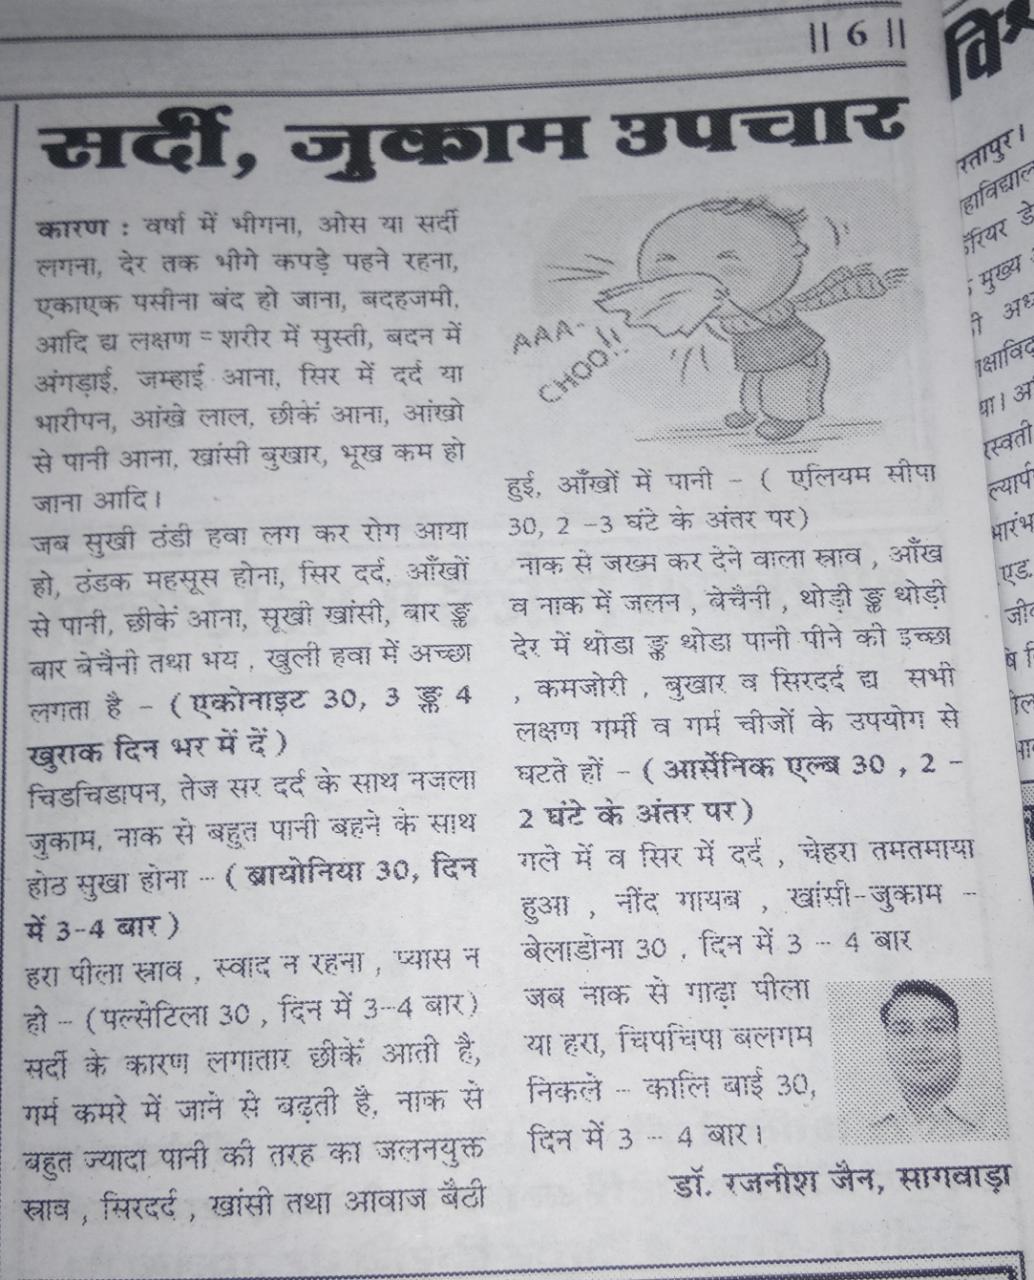 || 6 ||
सर्दी, जुकाम उपचार
कारण : वर्षा में भीगना, ओस या सर्दी
लगना, देर तक भीगे कपड़े पहने रहना,
एकाएक पसीना बंद हो जाना, बदहजमी,
आदि द्य लक्षण = शरीर में सुस्ती, बदन में
अंगड़ाई, जम्हाई आना, सिर में दर्द या
भारीपन, आंखे लाल, छीकें आना, आंखो
से पानी आना, खांसी बुखार, भूख कम हो
जाना आदि।
जब सुखी ठंडी हवा लग कर रोग आया
हो, ठंडक महसूस होना, सिर दर्द, आँखों
से पानी, छीकें आना, सूखी खांसी, बार ङ्क
बार बेचैनी तथा भय , खुली हवा में अच्छा
लगता है - ( एकोनाइट 30, 3 ङ्क 4
खुराक दिन भर में दें )
चिडचिडापन, तेज सर दर्द के साथ नजला
जुकाम, नाक से बहुत पानी बहने के साथ
होठ सुखा होना -- ( ब्रायोनिया 30, दिन
में 3-4 बार )
हरा पीला स्राव , स्वाद न रहना , प्यास न
हो -- (पल्सेटिला 30 , दिन में 3-4 बार)
सर्दी के कारण लगातार छीकें आती है,
गर्म कमरे में जाने से बढ़ती है, नाक से
बहुत ज्यादा पानी की तरह का जलनयुक्त
स्राव , सिरदर्द , खांसी तथा आवाज बैठी
AAA-
CHOO!!
हुई, आँखों में पानी - ( एलियम सीपा
30, 2 -3 घंटे के अंतर पर)
नाक से जख्म कर देने वाला स्राव , आँख
व नाक में जलन , बेचैनी , थोड़ी ङ्क थोड़ी
देर में थोडा ङ्क थोडा पानी पीने की इच्छा
, कमजोरी , बुखार व सिरदर्द द्य सभी
लक्षण गर्मी व गर्म चीजों के उपयोग से
घटते हों - ( आर्सेनिक एल्ब 30 , 2 -
2 घंटे के अंतर पर)
गले में व सिर में दर्द , चेहरा तमतमाया
हुआ , नींद गायब , खांसी-जुकाम -
बेलाडोना 30 , दिन में 3 -- 4 बार
जब नाक से गाढ़ा पीला
या हरा, चिपचिपा बलगम
निकले -- कालि बाई 30,
दिन में 3 -- 4 बार।
डॉ. रजनीश जैन, सागवाड़ा